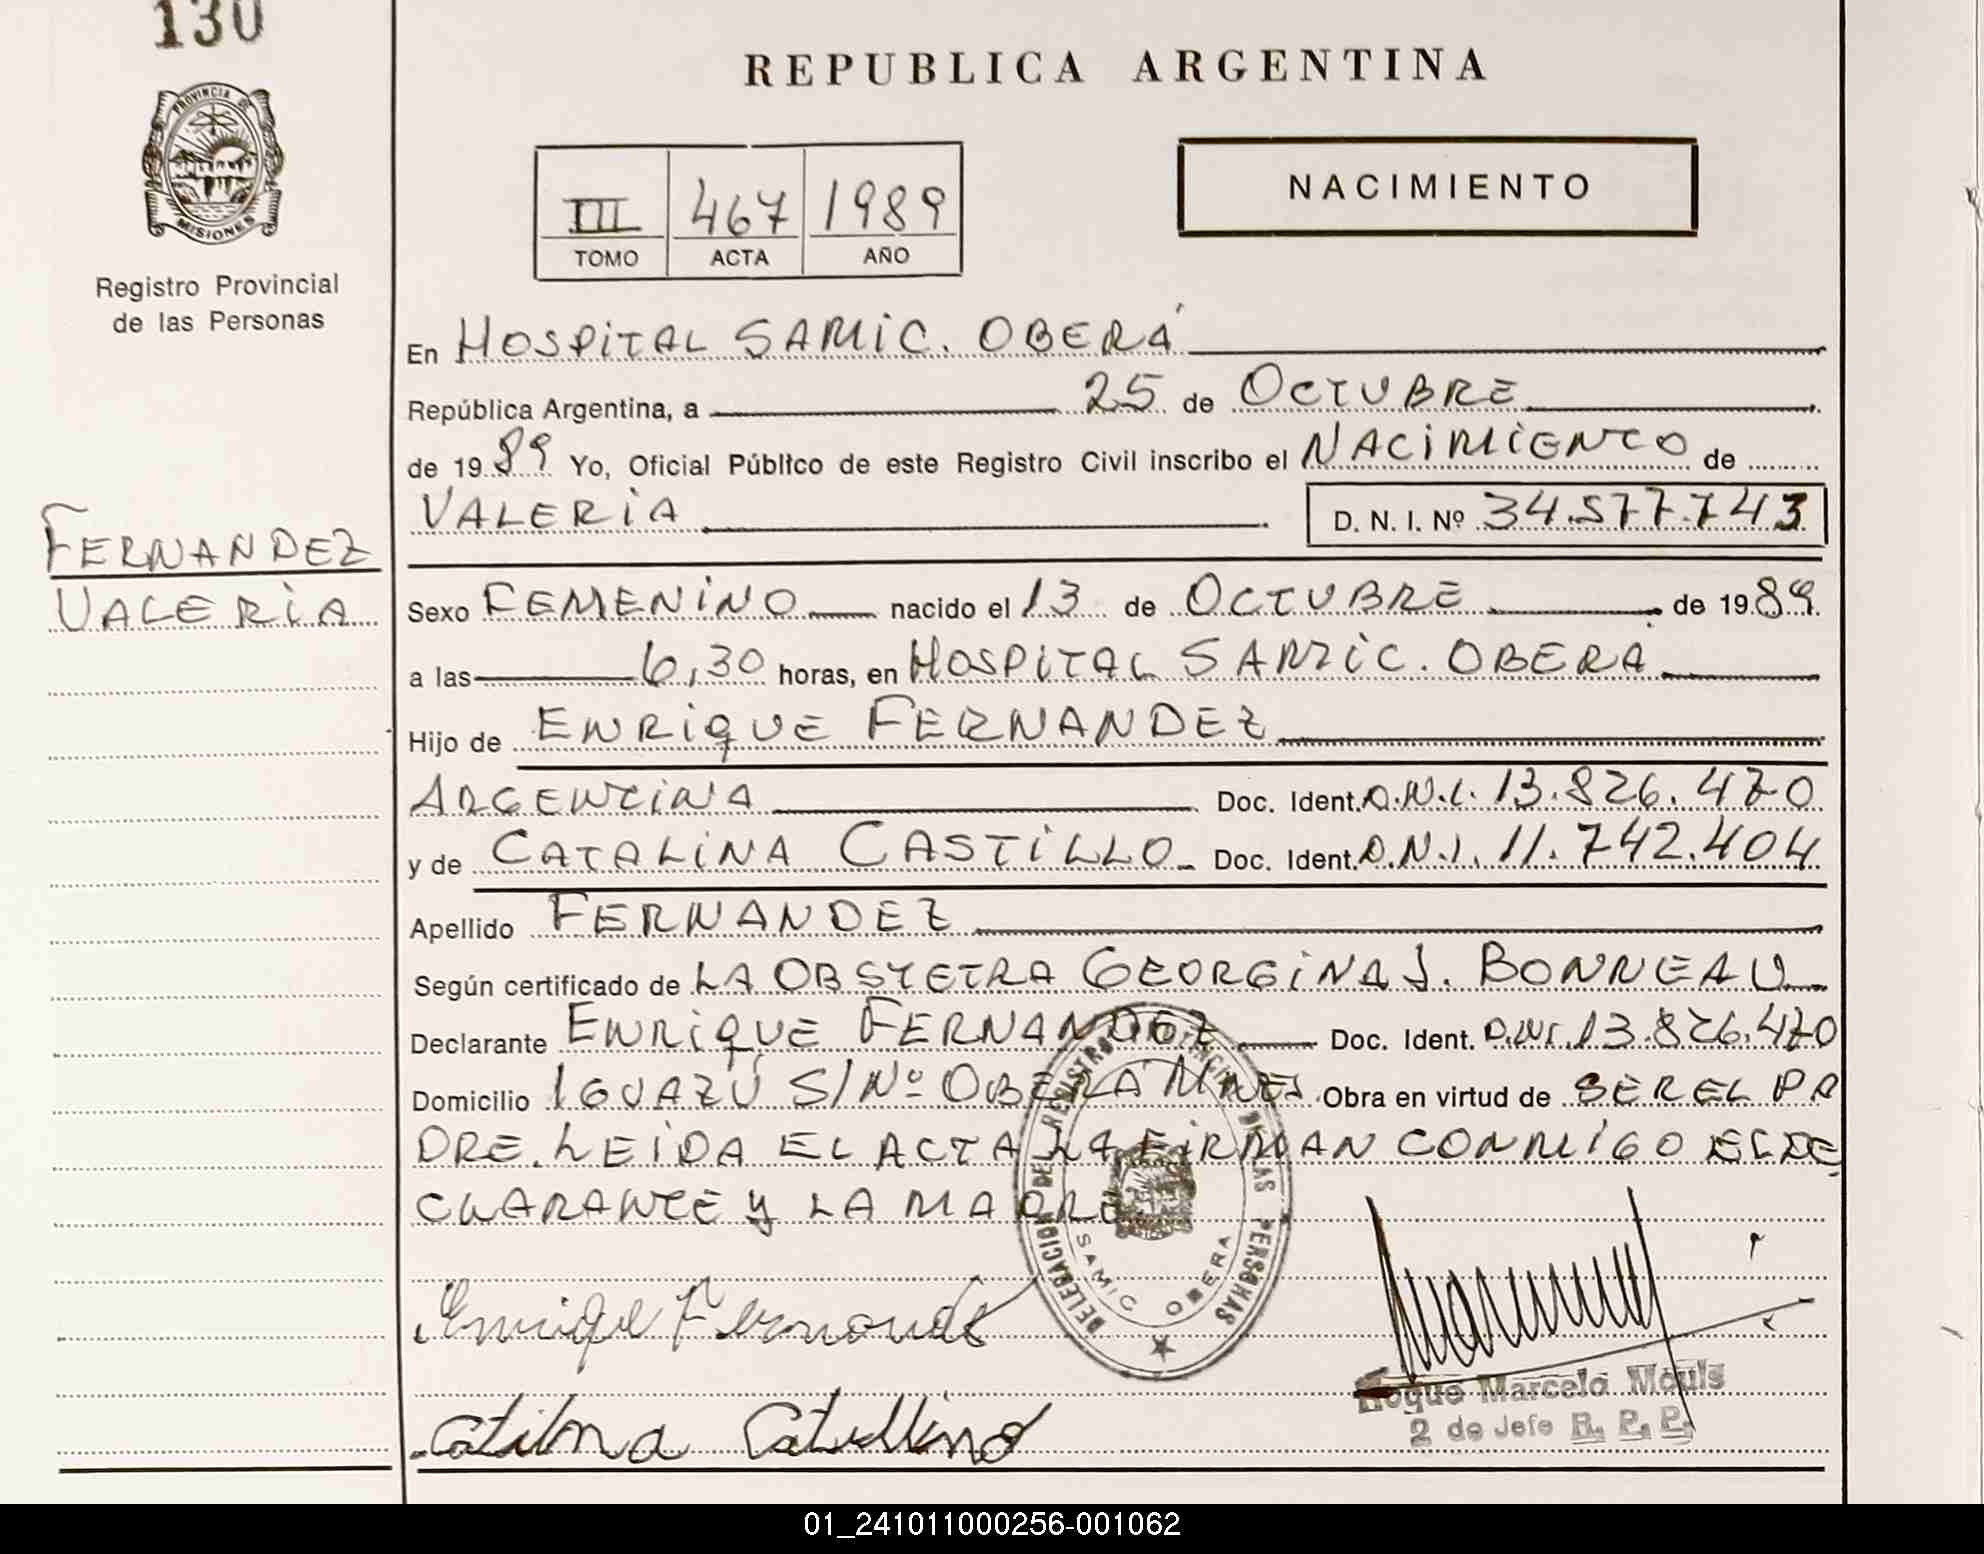 130
PROVINCIA DE
MISIONES
Registro Provincial
de las Personas
FERNANDEZ
VALERIA
REPUBLICA ARGENTINA
III 467 1989
TOMO ACTA AÑO
NACIMIENTO
En HOSPITAL SAMIC. OBERÁ
República Argentina, a 25 de OCTUBRE
de 1989 Yo, Oficial Público de este Registro Civil inscribo el NACIMIENTO de
VALERIA D. N. I. Nº 34.577.743
Sexo FEMENINO nacido el 13 de OCTUBRE de 1989
a las 6,30 horas, en HOSPITAL SAMIC. OBERÁ
Hijo de ENRIQUE FERNANDEZ
ARGENTINA Doc. Ident. D.N.I. 13.826.470
y de CATALINA CASTILLO Doc. Ident. D.N.I. 11.742.404
Apellido FERNANDEZ
Según certificado de LA OBSTETRA GEORGINA J. BONNEAU
Declarante ENRIQUE FERNANDEZ Doc. Ident. D.N.I. 13.826.470
Domicilio IGUAZÚ S/Nº OBERÁ MNES Obra en virtud de SER EL PA
DRE. LEIDA EL ACTA LA FIRMAN CONMIGO EL DE
CLARANTE Y LA MADRE
DELEGACION DE REGISTRO PROVINCIAL DE LAS PERSONAS
SAMIC OBERA
Enrique Fernandes
Roque Marcelo Mouls
2 do Jefe R. P. P.
01_241011000256-001062